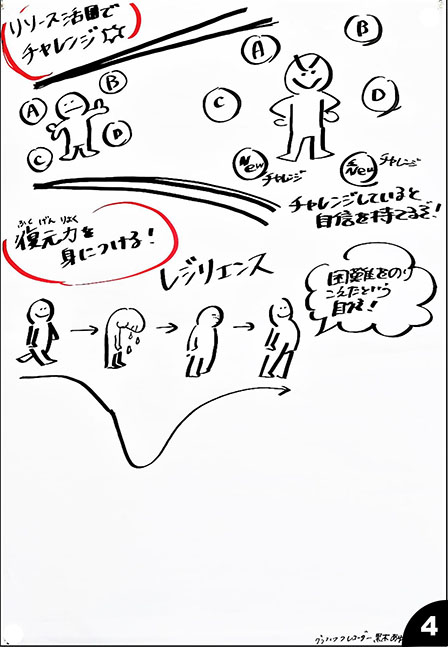 リソース活用で
チャレンジ☆
A
B
C
D
A
B
C
D
New
チャレンジ
New
チャレンジ
チャレンジしていると
自信を持てるぞ!
ふく げん りょく
復元力を
身につける!
レジリエンス
困難をのり
こえたという
自信!
グラフィックレコーダー
4